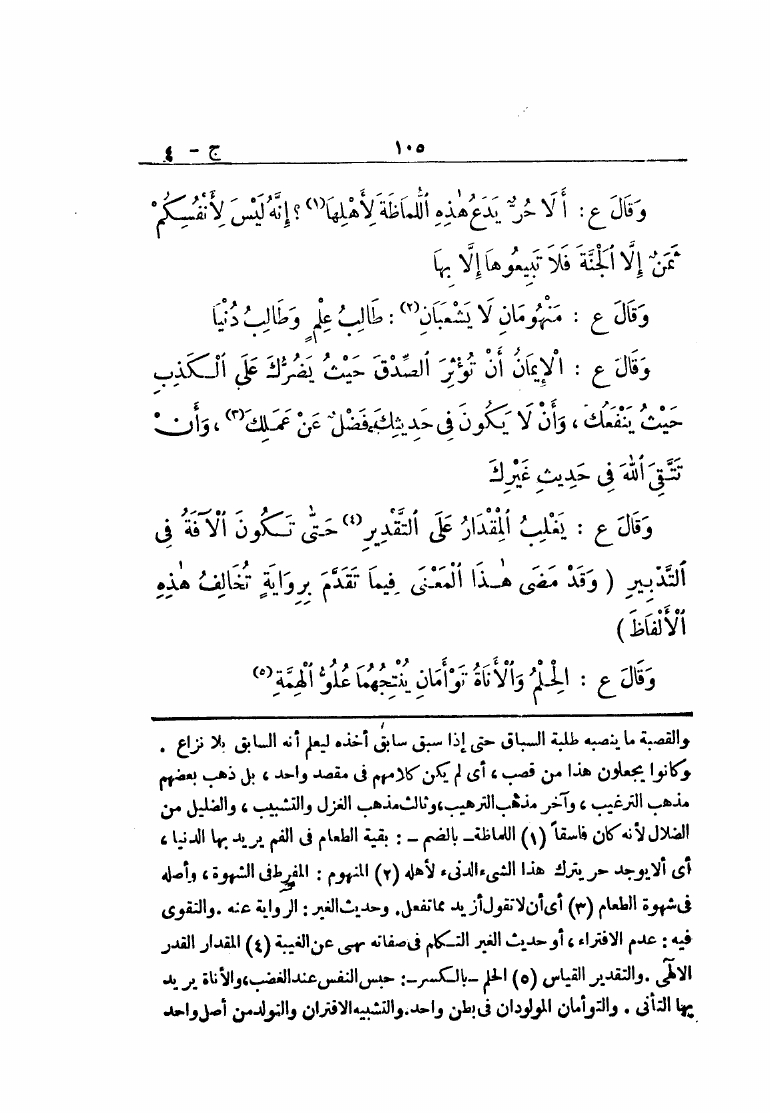 ١٠٥ ج - ٤
وَقَالَ ع : أَلَا حُرٌّ يَدَعُ هٰذِهِ ٱللُّمَاظَةَ لِأَهْلِهَا (١) ؟ إِنَّهُ لَيْسَ لِأَنْفُسِكُمْ
ثَمَنٌ إِلَّا ٱلْجَنَّةَ فَلَا تَبِيعُوهَا إِلَّا بِهَا
وَقَالَ ع : مَنْهُومَانِ لَا يَشْعَبَانِ (٢) : طَالِبُ عِلْمٍ وَطَالِبُ دُنْيَا
وَقَالَ ع : الْإِيمَانُ أَنْ تُؤْثِرَ ٱلصِّدْقَ حَيْثُ يَضُرُّكَ عَلَى ٱلْكَذِبِ
حَيْثُ يَنْفَعُكَ ، وَأَنْ لَا يَكُونَ فِى حَدِيثِكَ فَضْلٌ عَنْ عَمَلِكَ (٣) ، وَأَنْ
تَتَّقِىَ ٱللهَ فِى حَدِيثِ غَيْرِكَ
وَقَالَ ع : يَغْلِبُ ٱلْمِقْدَارُ عَلَى ٱلتَّقْدِيرِ (٤) حَتَّى تَكُونَ ٱلْآفَةُ فِى
ٱلتَّدْبِيرِ ( وَقَدْ مَضَى هٰذَا ٱلْمَعْنَى فِيمَا تَقَدَّمَ بِرِوَايَةٍ تُخَالِفُ هٰذِهِ
ٱلْأَلْفَاظَ )
وَقَالَ ع : الْحِلْمُ وَٱلْأَنَاةُ تَوْأَمَانِ يُنْتِجُهُمَا عُلُوُّ ٱلْهِمَّةِ (٥)
والقصبة ما ينصبه طلبة السباق حتى إذا سبق سابق أخذه ليعلم أنه السابق بلا نزاع .
وكانوا يجعلون هذا من قصب ، أى لم يكن كلامهم فى مقصد واحد ، بل ذهب بعضهم
مذهب الترغيب ، وآخر مذهب الترهيب، وثالث مذهب الغزل والتشبيب ، والضليل من
الضلال لأنه كان فاسقاً (١) اللماظة - بالضم - : بقية الطعام فى الفم يريد بها الدنيا ،
أى ألا يوجد حر يترك هذا الشىء الدنىء لأهله (٢) المنهوم : المفرط فى الشهوة ، وأصله
فى شهوة الطعام (٣) أى أن لا تقول أزيد مما تفعل. وحديث الغير : الرواية عنه .والتقوى
فيه : عدم الافتراء ، أو حديث الغير التكلم فى صفاته نهى عن الغيبة (٤) المقدار القدر
الالهى . والتقدير القياس (٥) الحلم - بالكسر - : حبس النفس عند الغضب، والأناة يريد
بها التأنى . والتوأمان المولودان فى بطن واحد. والتشبيه الاقتران والتولد من أصل واحد